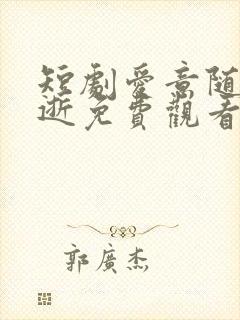 短劇愛意随
逝免費觀看
郭廣杰